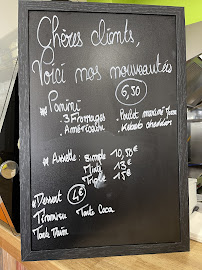 Chères clients,
Voici nos nouveautés
Panini 6,50
. 3 Fromages . Poulet
. Américain . Kebab cheddar
Assiette : Simple 10,50€
13€
Triple 15€
Dessert 4€
Tiramisu Tarte Coca
Tarte Daim